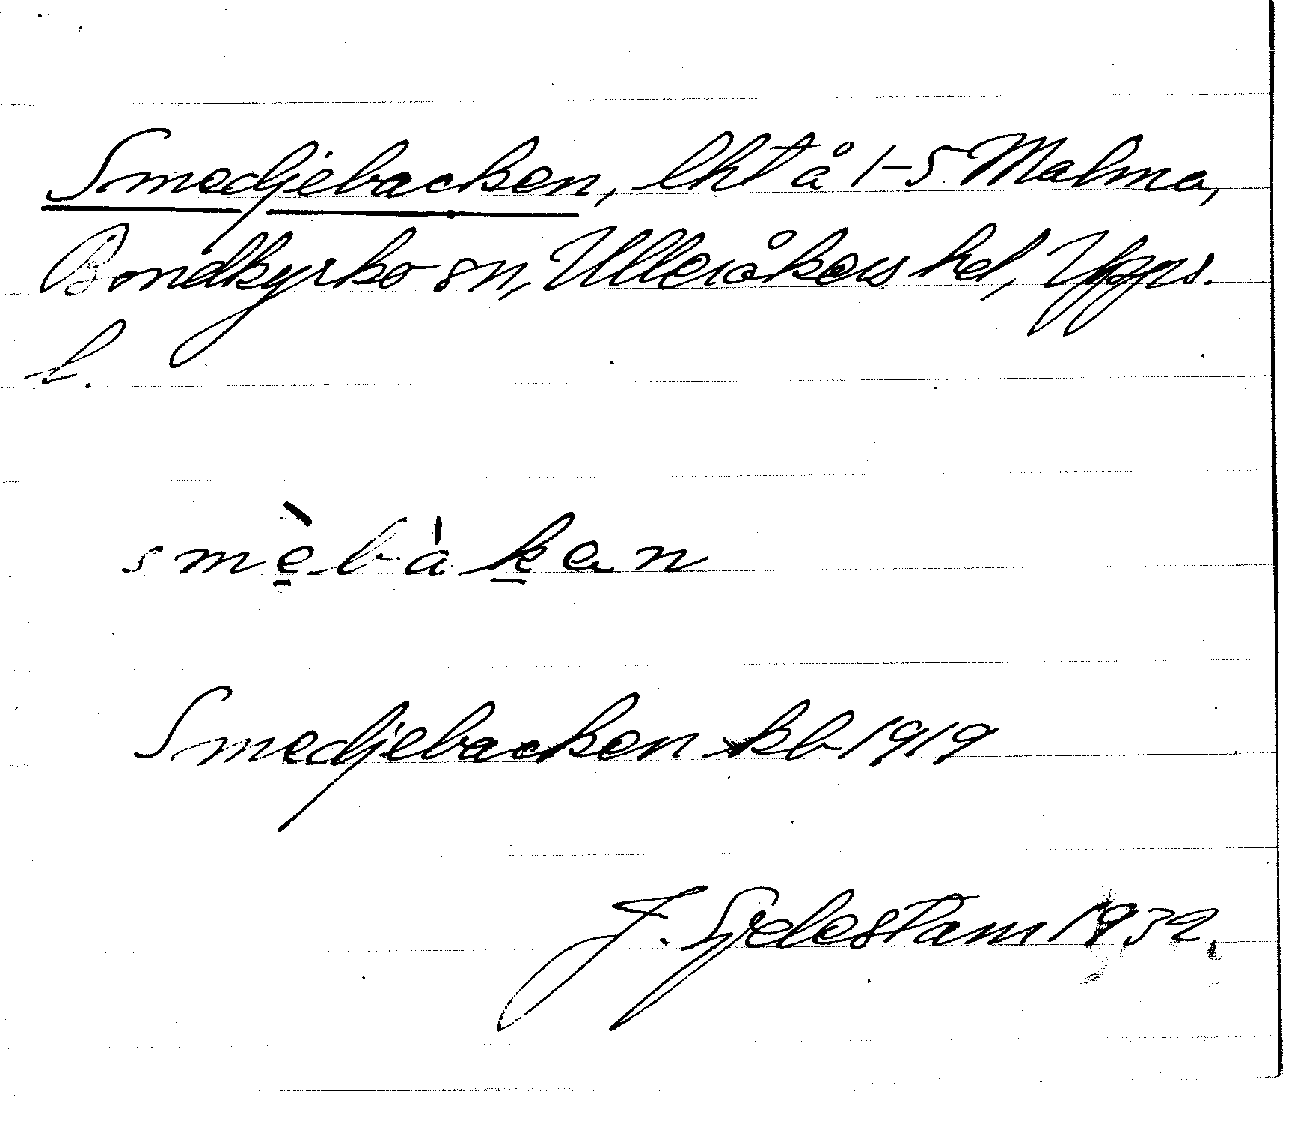 Smedjebacken, lht å 1-5 Malma,
Bondkyrko sn, Ulleråkers hd, Upps.
l.
smẹ̀bàk̠en
Smedjebacken kb 1919
J. Sjelestam 1932.